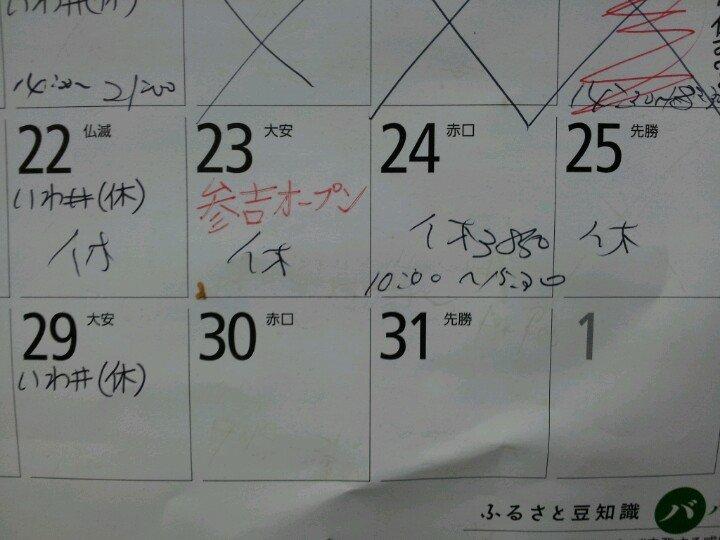 いわ井(休)
14:00~21:00
14:30~18:30
22 仏滅
23 大安
24 赤口
25 先勝
いわ井(休)
参吉オープン
休
休
休 3850
休
10:00 ~15:30
29 大安
30 赤口
31 先勝
1
いわ井(休)
ふるさと豆知識
バ